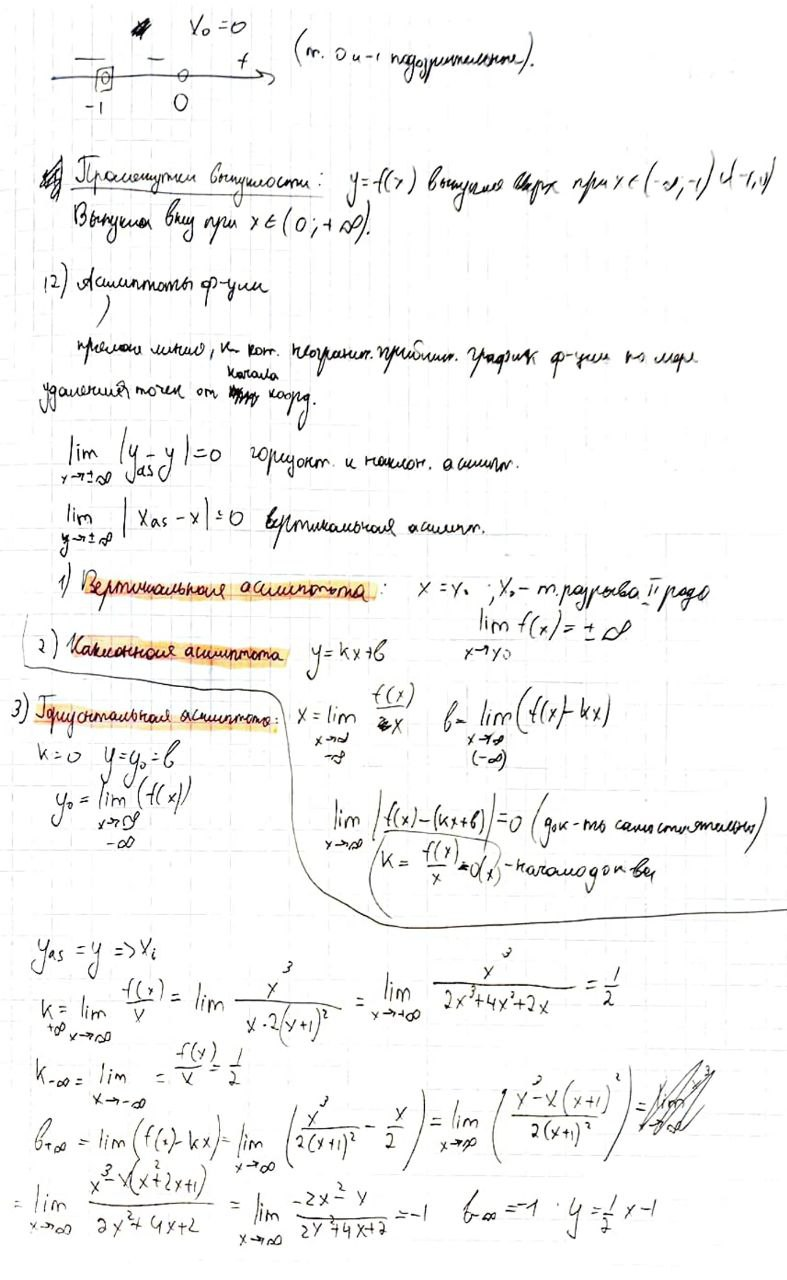 x₀ = 0
− − + (т. 0 и −1 подозрительные).
−1 0
Промежутки выпуклости: y=f(x) выпукла вверх при x∈(−∞;−1)∪(−1;0)
Выпукла вниз при x∈(0;+∞).
12) Асимптоты ф-ции
прямая линия, к кот. неогранич. приближ. график ф-ции по мере
удаления точек от начала коорд.
lim x→±∞ |y_as − y| = 0 горизонт. и наклон. асимпт.
lim y→±∞ |x_as − x| = 0 вертикальная асимпт.
1) Вертикальная асимптота: x = x₀ ; x₀ – т. разрыва II рода
lim x→x₀ f(x) = ±∞
2) Наклонная асимптота y = kx+b
3) Горизонтальная асимптота: x = lim x→∞ −∞ f(x)/x b = lim x→∞ (−∞) (f(x) − kx)
k=0 y=y₀=b
y₀ = lim x→∞ −∞ (f(x))
lim x→∞ |f(x) − (kx+b)| = 0 (док-ть самостоятельно)
(k = f(x)/x = o(x) – начало док-ва
y_as = y => x_i
k_+∞ = lim x→∞ f(x)/x = lim x³/(x·2(x+1)²) = lim x→+∞ x³/(2x³+4x²+2x) = 1/2
k_−∞ = lim x→−∞ = f(x)/x = 1/2
b_+∞ = lim (f(x)−kx) = lim x→∞ (x³/(2(x+1)²) − x/2) = lim x→∞ ((x³−x(x+1)²)/(2(x+1)²)) =
= lim x→∞ (x³−x(x²+2x+1))/(2x²+4x+2) = lim x→∞ (−2x²−x)/(2x²+4x+2) = −1 b_∞ = −1 · y = 1/2 x − 1